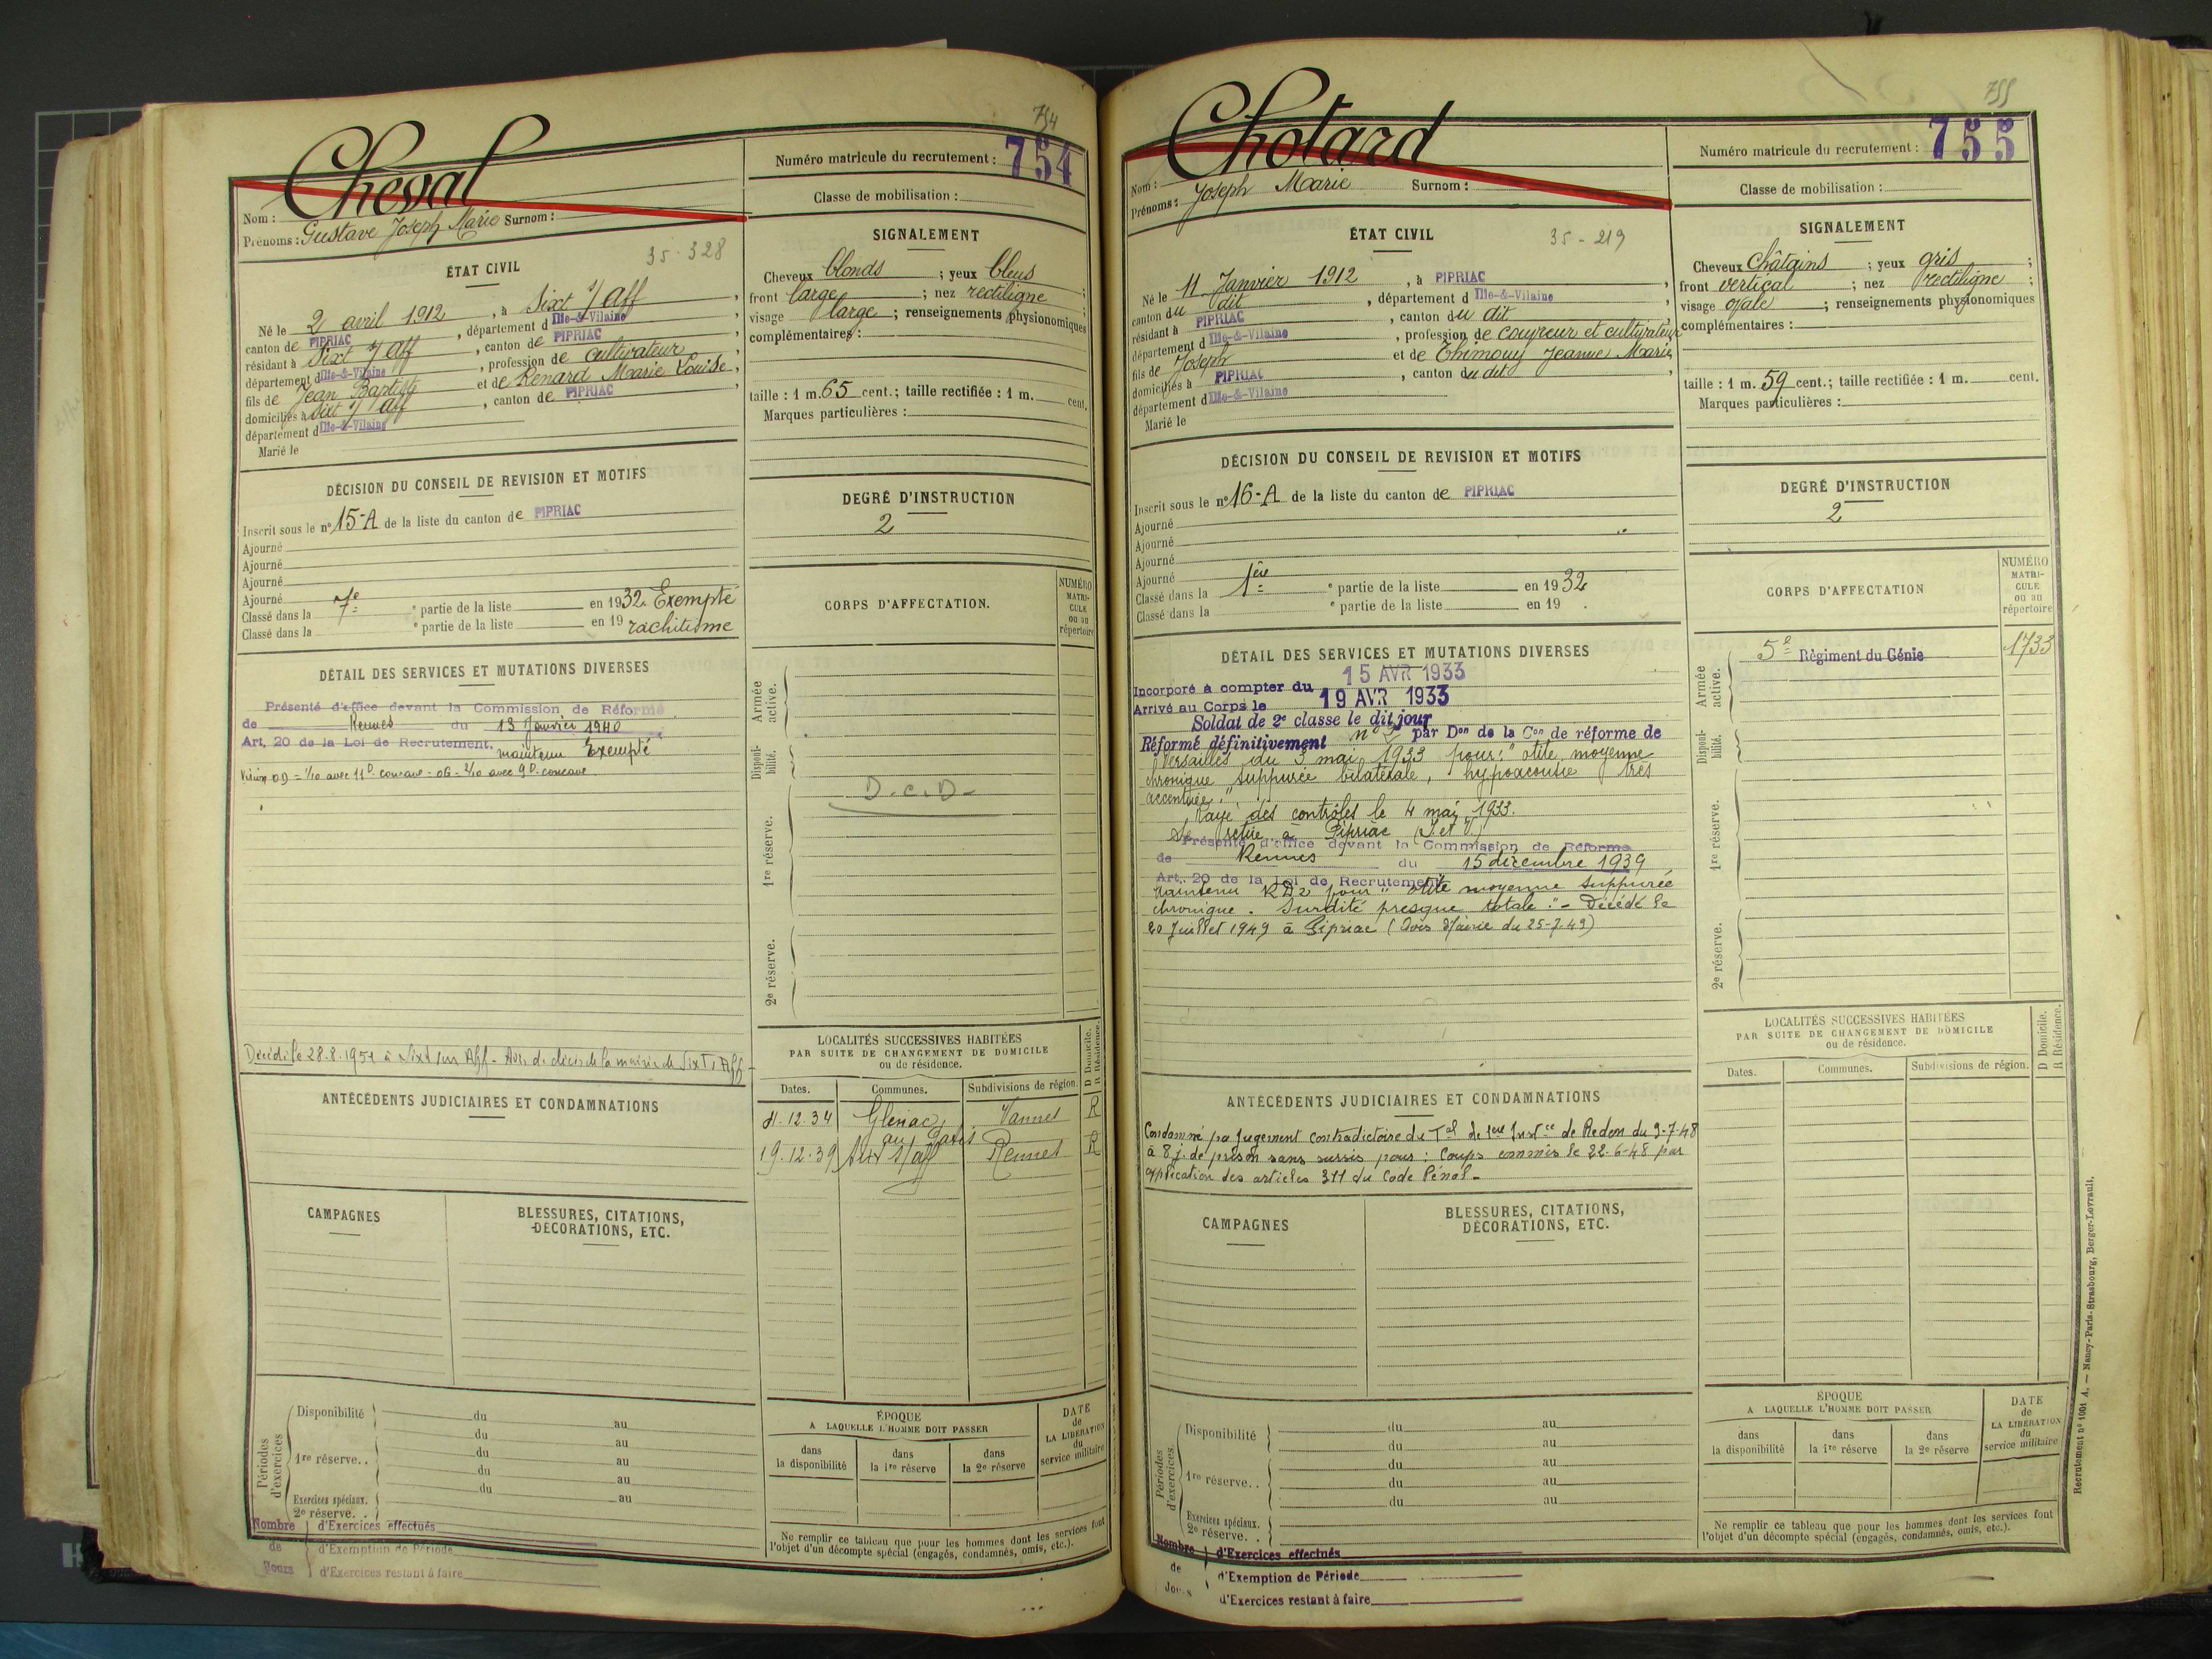 754
Cheval
Nom :
Surnom :
Prénoms : Gustave Joseph Marie
Numéro matricule du recrutement : 754
Classe de mobilisation :
ÉTAT CIVIL
35-328
Né le 2 avril 1912, à Sixt s/ Aff,
canton de PIPRIAC, département d Ille-&-Vilaine,
résidant à Sixt s/ Aff, canton de PIPRIAC,
département d Ille-&-Vilaine, profession de cultivateur,
fils de Jean Baptiste et de Renard Marie Louise,
domiciliés à Sixt s/ Aff, canton de PIPRIAC,
département d Ille-&-Vilaine
Marié le
SIGNALEMENT
Cheveux blonds ; yeux bleus ;
front large ; nez rectiligne ;
visage large ; renseignements physionomiques
complémentaires :
taille : 1 m. 65 cent. ; taille rectifiée : 1 m. cent.
Marques particulières :
DÉCISION DU CONSEIL DE REVISION ET MOTIFS
Inscrit sous le n° 15-A de la liste du canton de PIPRIAC
Ajourné
Ajourné
Ajourné
Ajourné
Classé dans la 7e partie de la liste en 1932 Exempté
Classé dans la e partie de la liste en 19 rachitisme
DEGRÉ D'INSTRUCTION
2
CORPS D'AFFECTATION.
NUMÉRO
MATRI-
CULE
ou au
répertoire
Armée
active.
Disponi-
bilité.
D.C.D-
1re réserve.
2e réserve.
DÉTAIL DES SERVICES ET MUTATIONS DIVERSES
Présenté d'office devant la Commission de Réforme
de Rennes du 13 Janvier 1940
Art. 20 de la Loi de Recrutement. maintenu Exempté
Vision OD = 1/10 avec 11 D. concave - OG - 2/10 avec 9 D. concave
Décédé le 28.8.1951 à Sixt sur Aff - Avis de décès de la mairie de Sixt s/ Aff -
ANTÉCÉDENTS JUDICIAIRES ET CONDAMNATIONS
LOCALITÉS SUCCESSIVES HABITÉES
PAR SUITE DE CHANGEMENT DE DOMICILE
ou de résidence.
D Domicile.
R Résidence.
Dates. Communes. Subdivisions de région.
11.12.34 Glénac Vannes R
19.12.39 Sixt s/ aff Rennes R
CAMPAGNES
BLESSURES, CITATIONS,
DÉCORATIONS, ETC.
Périodes
d'exercices
Disponibilité du au
du au
1re réserve.. du au
du au
du au
Exercices spéciaux.
2e réserve. .
Nombre d'Exercices effectués
de d'Exemption de Période
Jours d'Exercices restant à faire
ÉPOQUE
A LAQUELLE L'HOMME DOIT PASSER
dans
la disponibilité
dans
la 1re réserve
dans
la 2e réserve
DATE
de
LA LIBÉRATION
du
service militaire
Ne remplir ce tableau que pour les hommes dont les services font
l'objet d'un décompte spécial (engagés, condamnés, omis, etc.).
755
Chotard
Nom :
Surnom :
Prénoms : Joseph Marie
Numéro matricule du recrutement : 755
Classe de mobilisation :
ÉTAT CIVIL
35-219
Né le 11 Janvier 1912, à PIPRIAC,
canton du dit, département d Ille-&-Vilaine,
résidant à PIPRIAC, canton du dit,
département d Ille-&-Vilaine, profession de couvreur et cultivateur
fils de Joseph et de Thémoin Jeanne Marie,
domiciliés à PIPRIAC, canton du dit,
département d Ille-&-Vilaine
Marié le
SIGNALEMENT
Cheveux châtains ; yeux gris ;
front vertical ; nez rectiligne ;
visage ovale ; renseignements physionomiques
complémentaires :
taille : 1 m. 59 cent. ; taille rectifiée : 1 m. cent.
Marques particulières :
DÉCISION DU CONSEIL DE REVISION ET MOTIFS
Inscrit sous le n° 16-A de la liste du canton de PIPRIAC
Ajourné
Ajourné
Ajourné
Ajourné
Classé dans la 1ère e partie de la liste en 1932
Classé dans la e partie de la liste en 19 .
DEGRÉ D'INSTRUCTION
2
CORPS D'AFFECTATION
NUMÉRO
MATRI-
CULE
ou au
répertoire
Armée
active.
5e Régiment du Génie 1733
Disponi-
bilité.
1re réserve.
2e réserve.
DÉTAIL DES SERVICES ET MUTATIONS DIVERSES
Incorporé à compter du 15 AVR 1933
Arrivé au Corps le 19 AVR 1933
Soldat de 2e classe le dit jour
Réformé définitivement n° 2 par Don de la Con de réforme de
Versailles du 3 mai 1933 pour : "otite moyenne
chronique suppurée bilatérale, hypoacousie très
accentuée."
Rayé des contrôles le 4 mai 1933.
Se retire à Pipriac (I et V)
Présenté d'office devant la Commission de Réforme
de Rennes du 15 décembre 1939
Art. 20 de la Loi de Recrutement
Maintenu RD2 pour "otite moyenne suppurée
chronique. Surdité presque totale." - Décédé le
20 Juillet 1949 à Pipriac (Avis Mairie du 25-7-49)
ANTÉCÉDENTS JUDICIAIRES ET CONDAMNATIONS
Condamné par Jugement contradictoire du Tal de 1ere Instce de Redon du 9-7-48
à 8 j. de prison sans sursis pour : Coups commis le 22-6-48 par
application des articles 311 du Code Pénal -
LOCALITÉS SUCCESSIVES HABITÉES
PAR SUITE DE CHANGEMENT DE DOMICILE
ou de résidence.
D Domicile.
R Résidence.
Dates. Communes. Subdivisions de région.
CAMPAGNES
BLESSURES, CITATIONS,
DÉCORATIONS, ETC.
Périodes
d'exercices
Disponibilité du au
du au
1re réserve.. du au
du au
du au
Exercices spéciaux.
2e réserve. .
Nombre d'Exercices effectués
de d'Exemption de Période
Jours d'Exercices restant à faire
ÉPOQUE
A LAQUELLE L'HOMME DOIT PASSER
dans
la disponibilité
dans
la 1re réserve
dans
la 2e réserve
DATE
de
LA LIBÉRATION
du
service militaire
Ne remplir ce tableau que pour les hommes dont les services font
l'objet d'un décompte spécial (engagés, condamnés, omis, etc.).
Recrutement n° 1001 A. — Nancy-Paris-Strasbourg, Berger-Levrault.